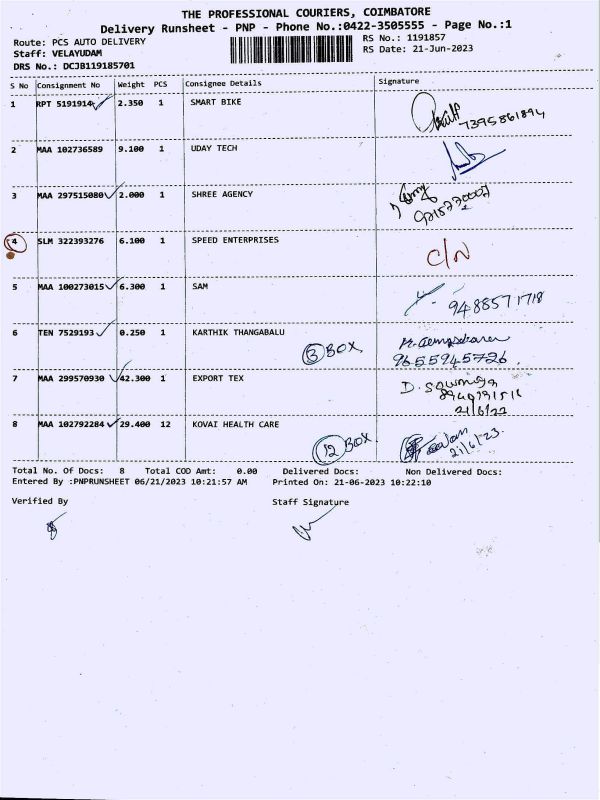 THE PROFESSIONAL COURIERS, COIMBATORE
Delivery Runsheet - PNP - Phone No.:0422-3505555 - Page No.:1
Route: PCS AUTO DELIVERY
RS No.: 1191857
Staff: VELAYUDAM
RS Date: 21-Jun-2023
DRS No.: DCJB119185701
S No Consignment No Weight PCS Consignee Details Signature
1 RPT 5191914 2.350 1 SMART BIKE
7395861894
2 MAA 102736589 9.100 1 UDAY TECH
3 MAA 297515080 2.000 1 SHREE AGENCY
4 SLM 322393276 6.100 1 SPEED ENTERPRISES
C/N
5 MAA 100273015 6.300 1 SAM
9488571718
6 TEN 7529193 0.250 1 KARTHIK THANGABALU
3 BOX
9655945726
7 MAA 299570930 42.300 1 EXPORT TEX
D. Sowmiya
8 MAA 102792284 29.400 12 KOVAI HEALTH CARE
12 BOX
21/6/23
Total No. Of Docs: 8 Total COD Amt: 0.00 Delivered Docs: Non Delivered Docs:
Entered By :PNPRUNSHEET 06/21/2023 10:21:57 AM Printed On: 21-06-2023 10:22:10
Verified By Staff Signature